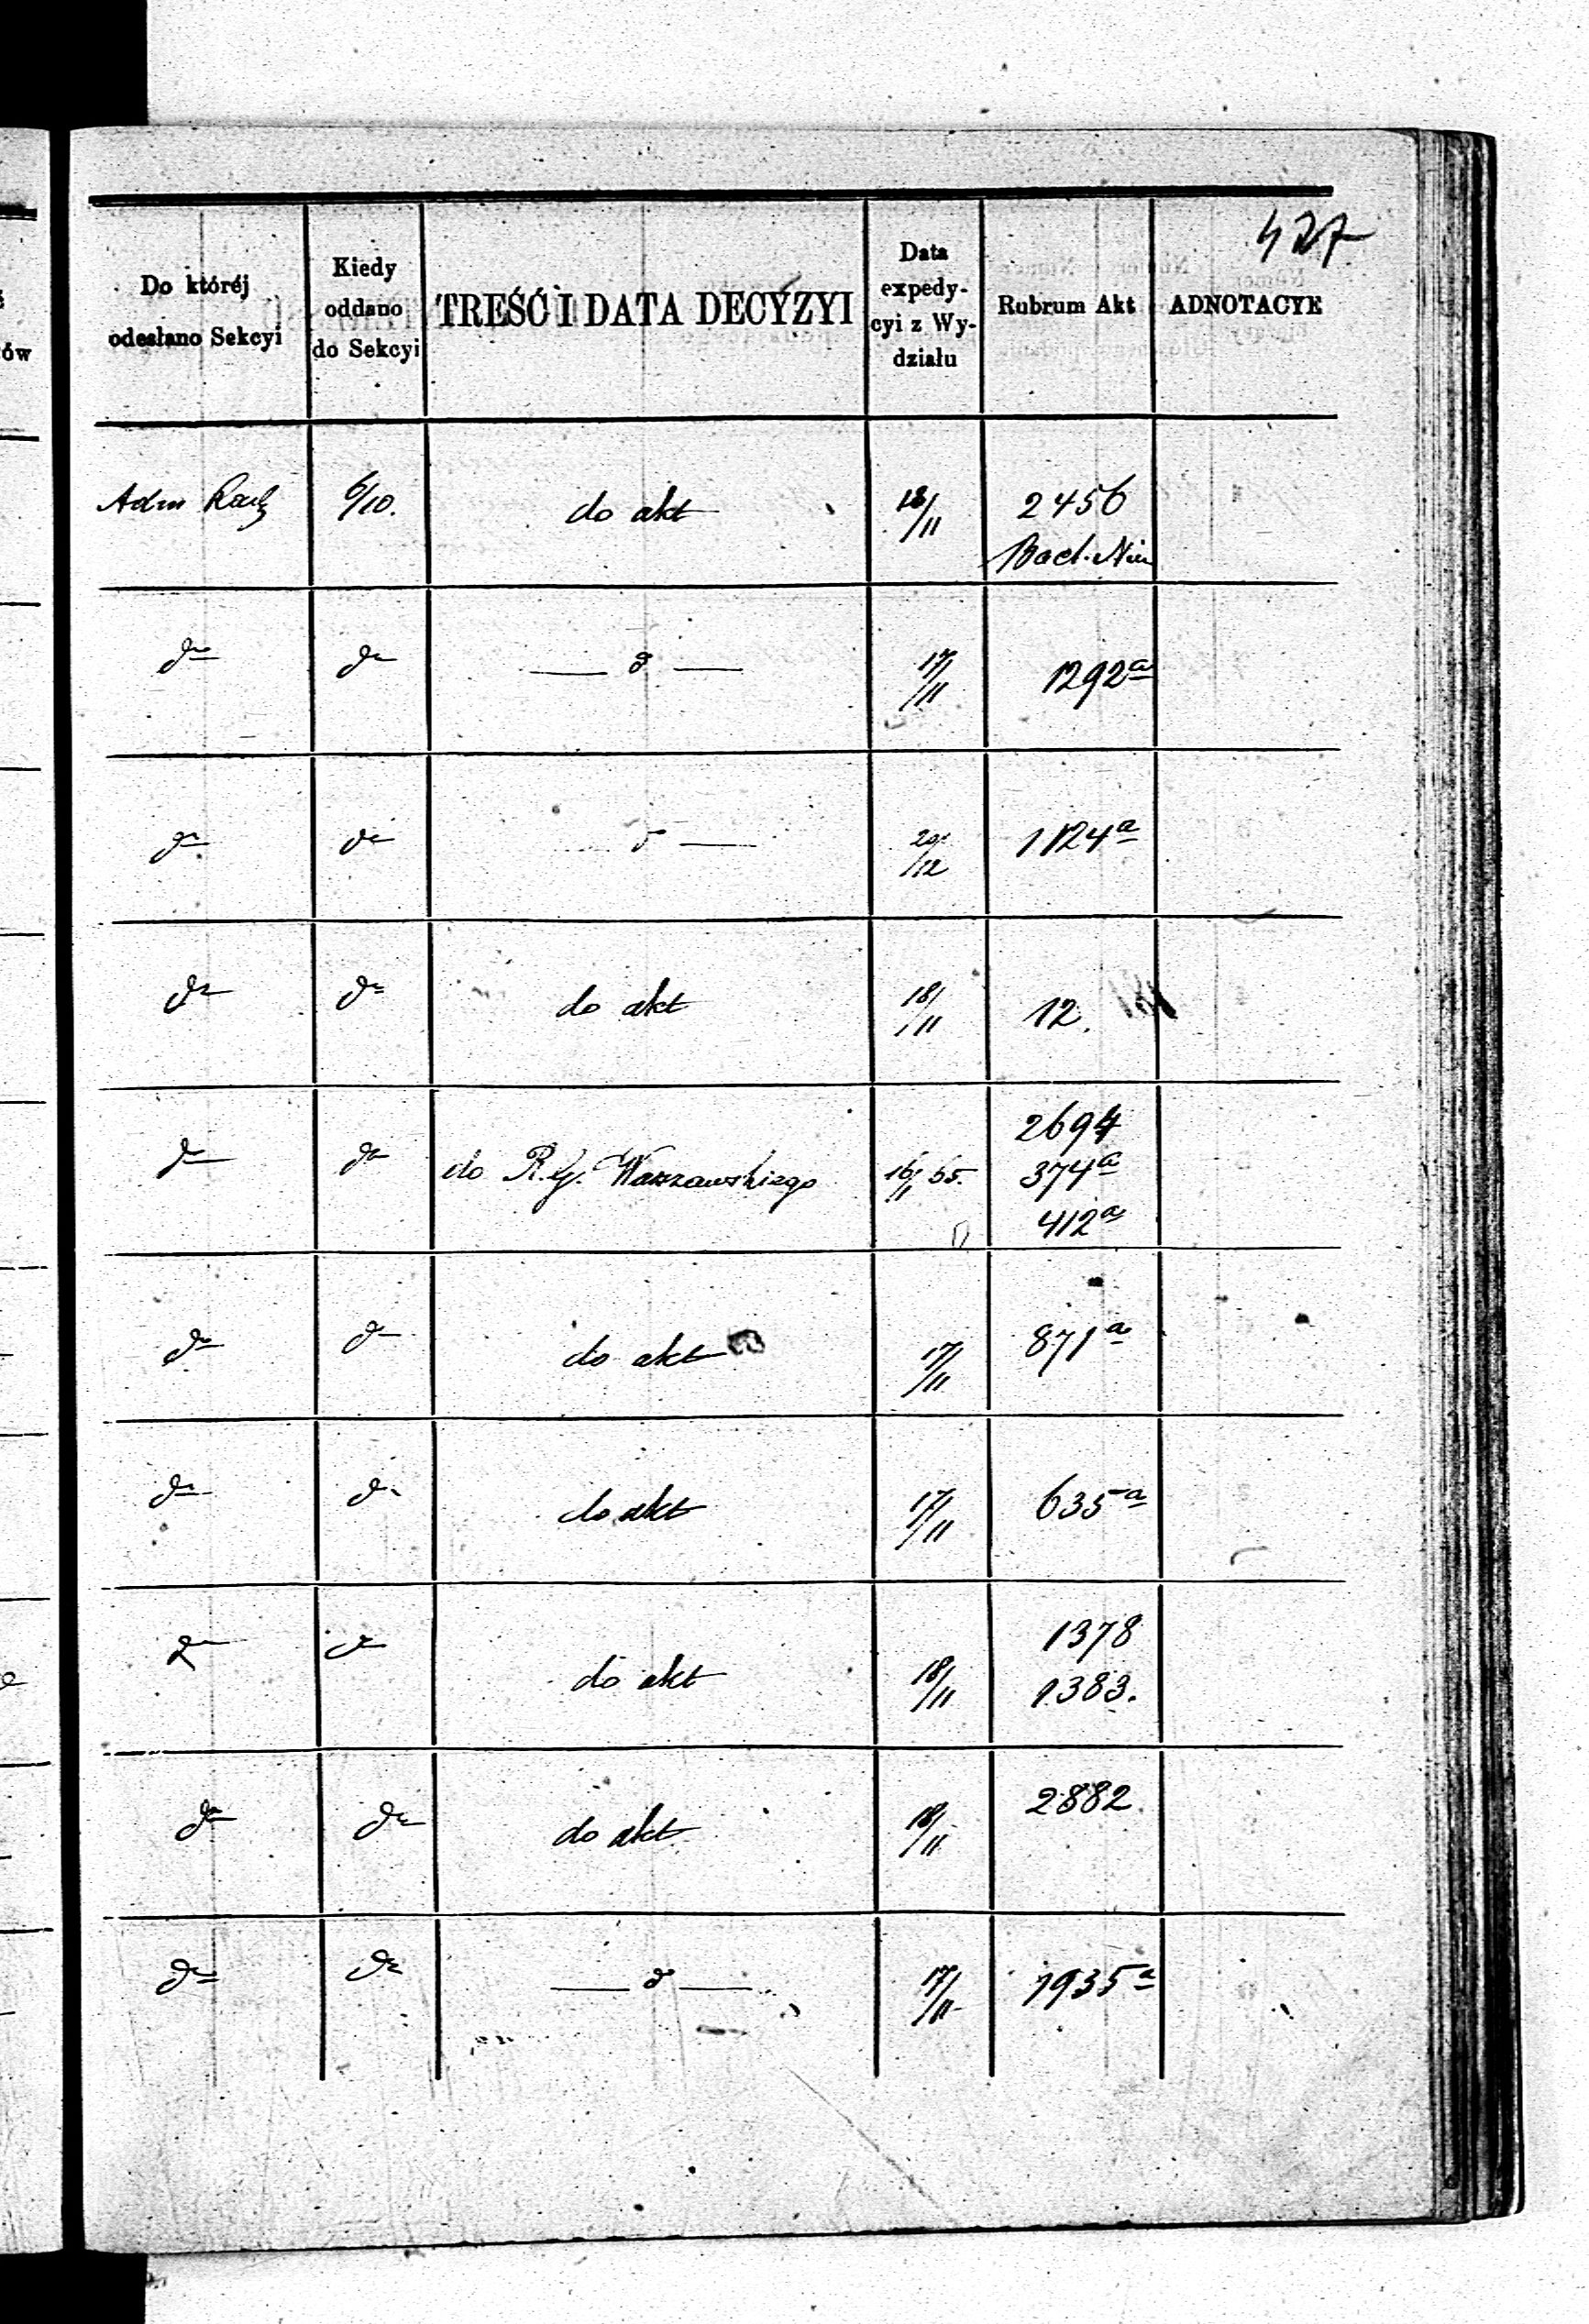 427
Do któréj odesłano Sekcyi
Kiedy oddano do Sekcyi
TREŚĆ I DATA DECYZYI
Data expedycyi z Wydziału
Rubrum Akt
ADNOTACYE
Adm 6/10. do akt 18/11 2456
dto dto — d — 17/11 1292a
dto dto — d — 20/12 1124a
dto dto do akt 18/11 12.
dto dto do R. G. Warszawskiego 16/1 65. 2694
374a
412a
dto dto do akt 17/11 871a
dto dto do akt 17/11 635a
dto dto do akt 18/11 1378
1383.
dto dto do akt 18/11 2882
dto dto — d — 17/11 1935a